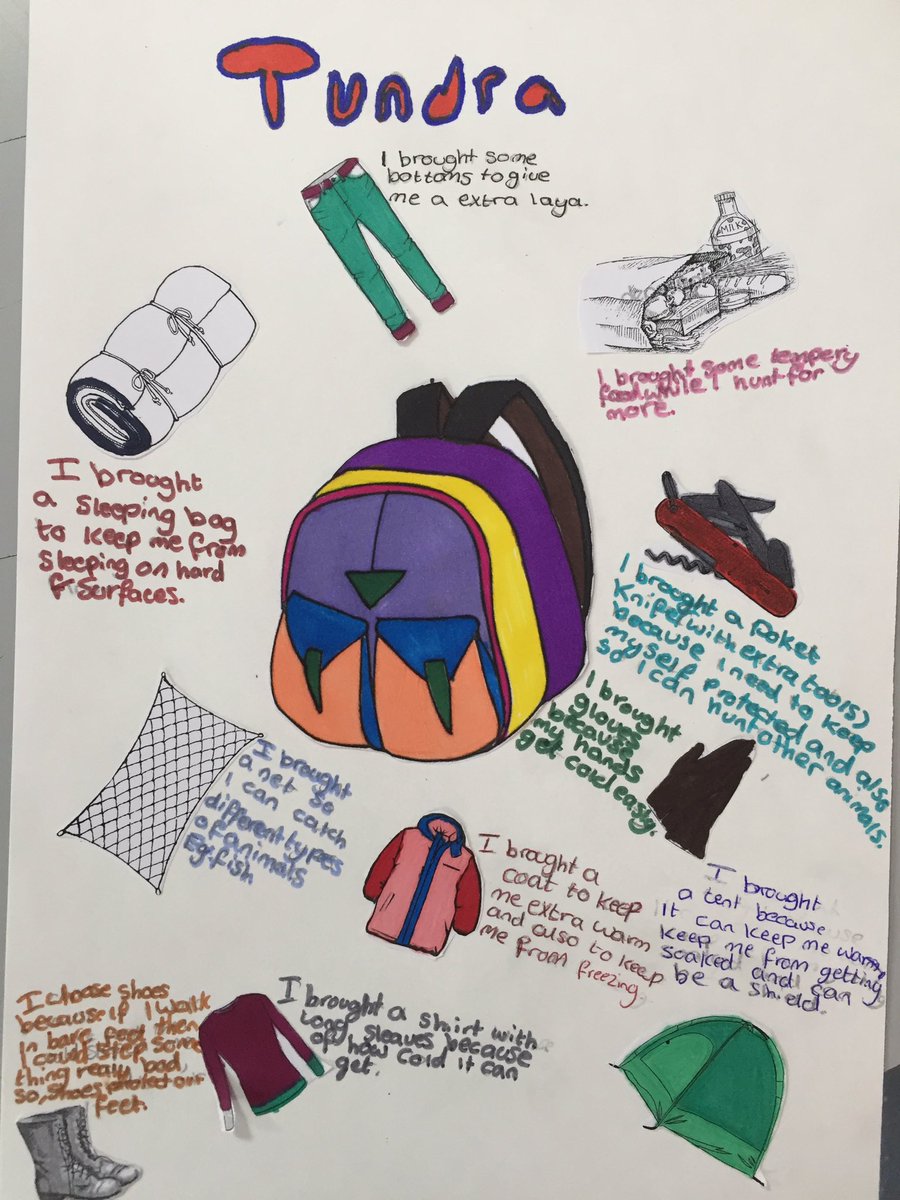 Tundra
I brought some
bottoms to give
me a extra laya.
MILK
I brought some tempery
food while I hunt for
more.
I brought
a sleeping bag
to keep me from
sleeping on hard
surfaces.
I brought a poket
Knife(with extra tools)
because I need to keep
myself protected and also
so I can hunt other animals.
I brought
gloves
because
my hands
get cold easy.
I brought
a net so
I can catch
different types
of animals
Eg.fish
I brought a
coat to keep
me extra warm
and also to keep
me from freezing.
I brought
a tent because
it can keep me warm,
keep me from getting
soaked and can
be a shield.
I choose shoes
because if I walk
In bare feet then
I could step some
thing really bad
so, shoes protect our
feet.
I brought a shirt with
long sleaves because
of how cold it can
get.